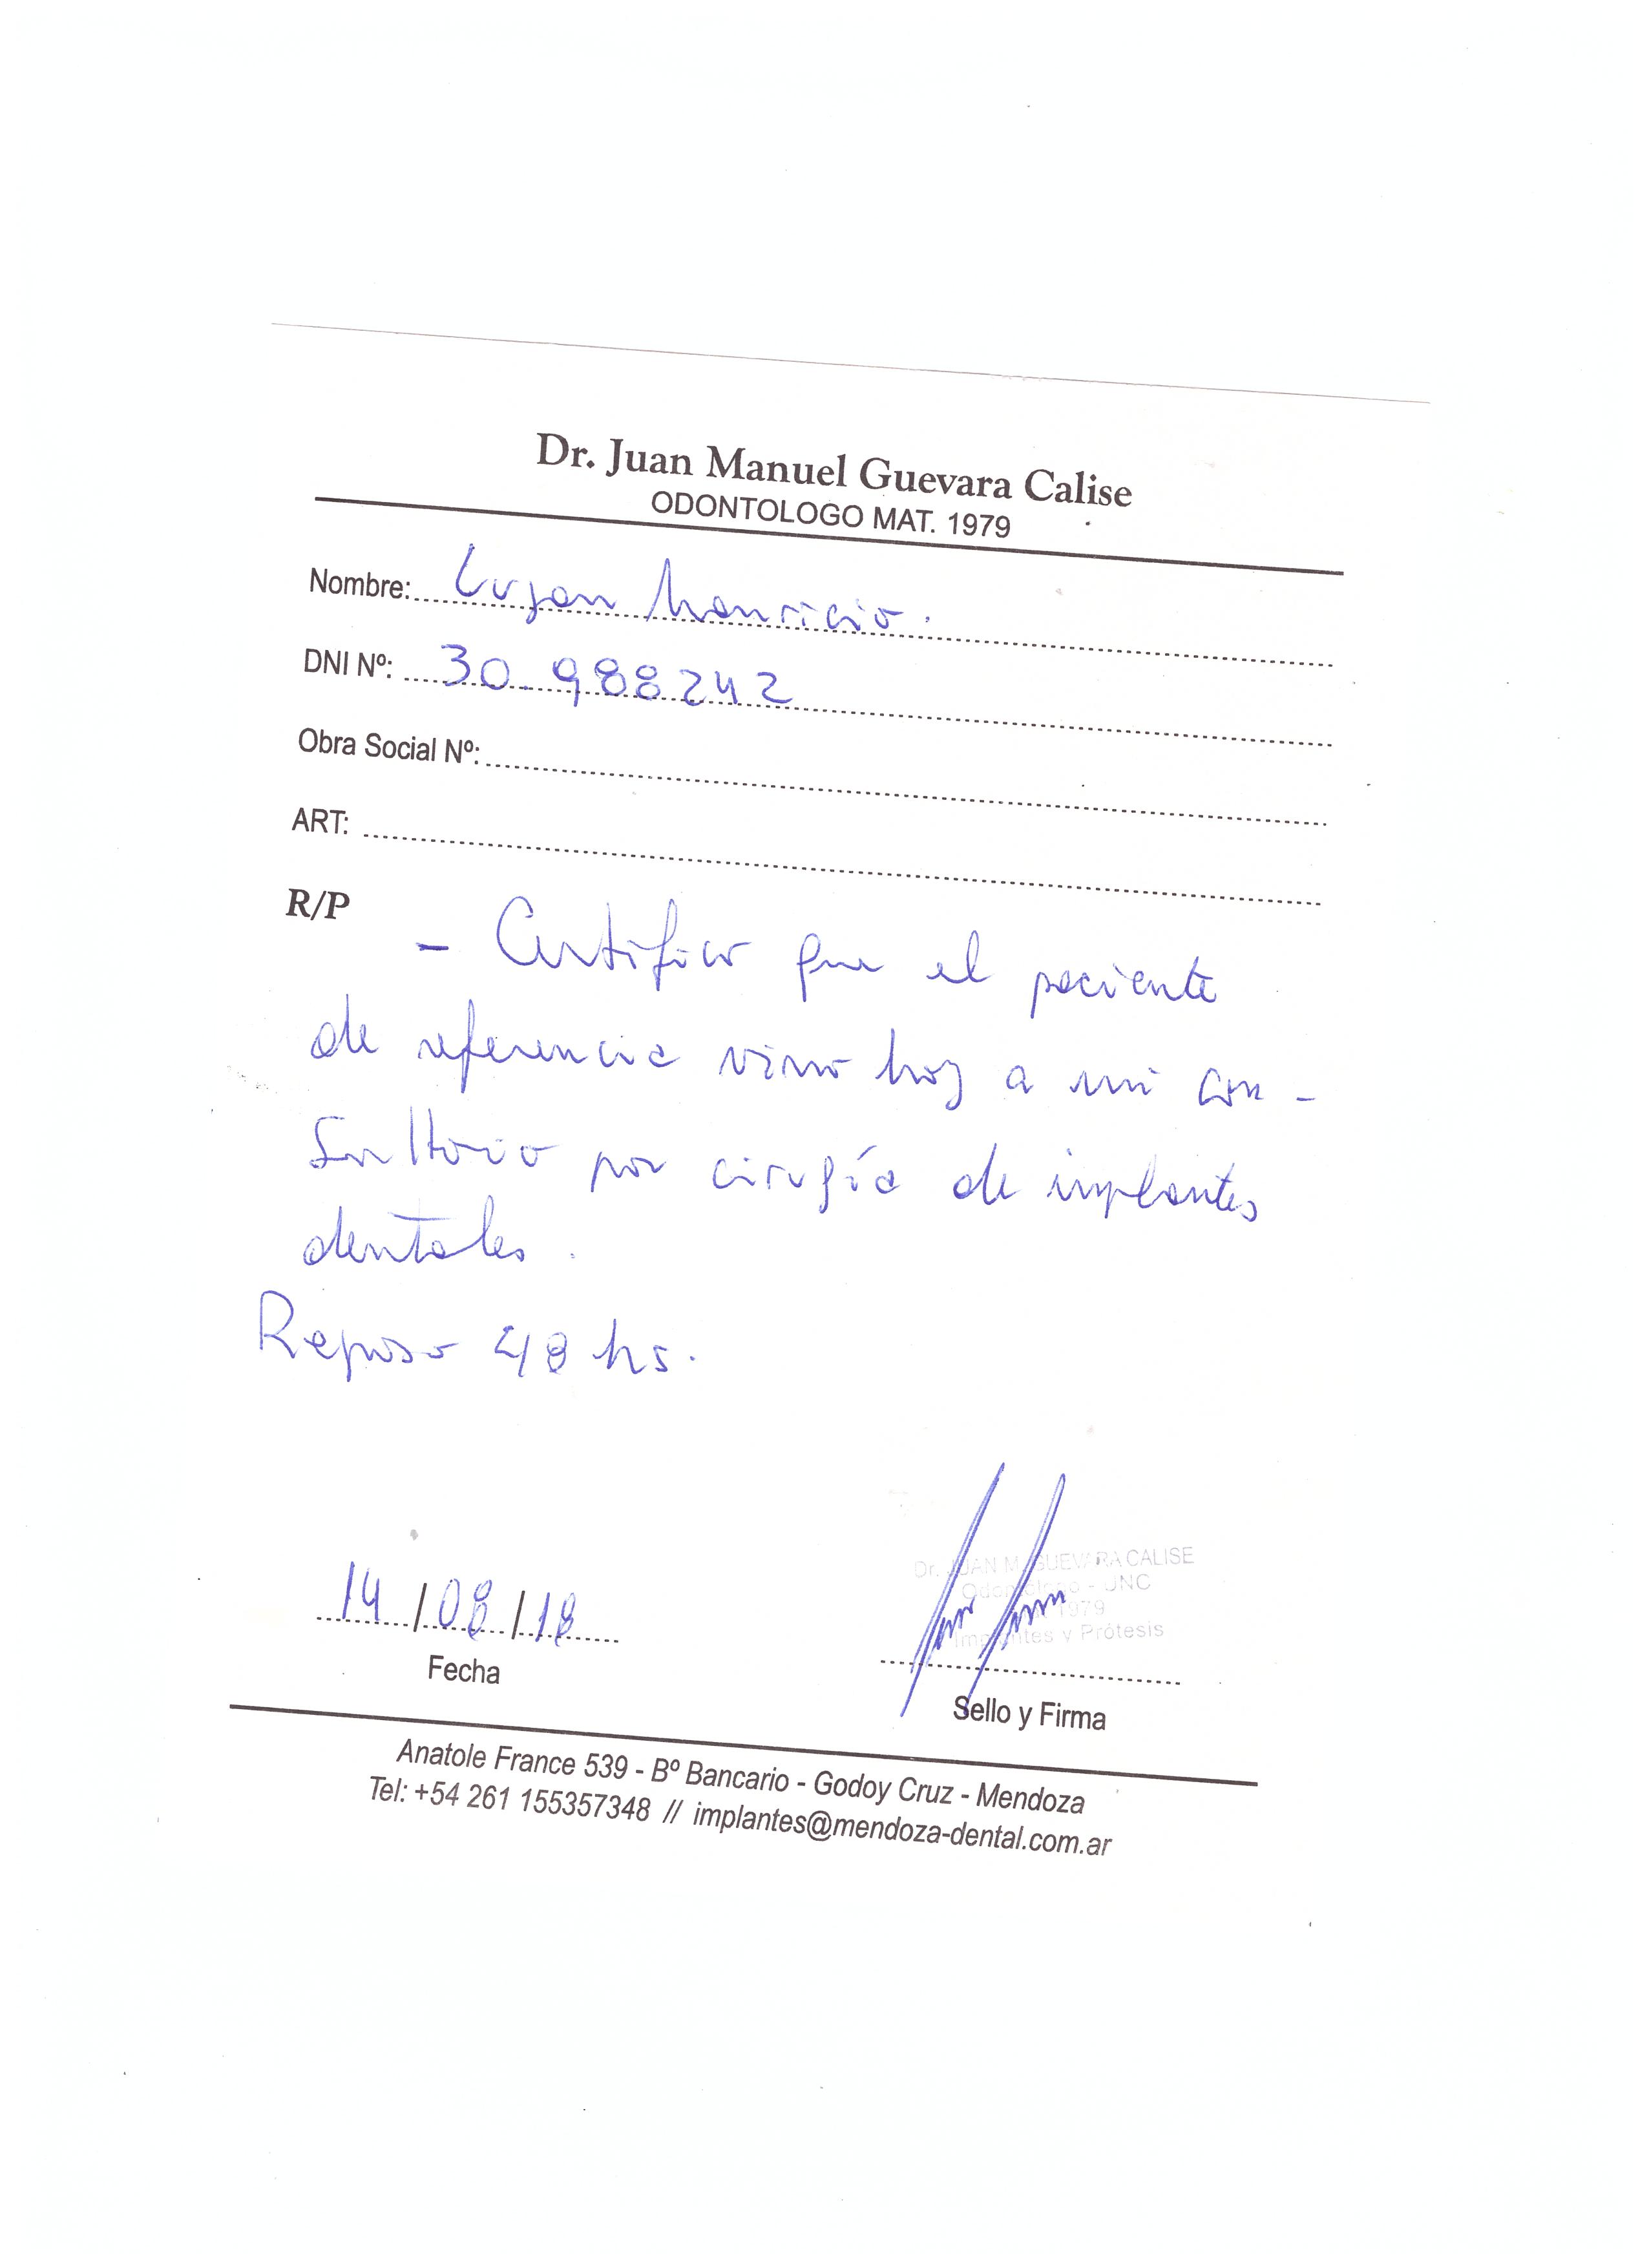 Dr. Juan Manuel Guevara Calise
ODONTOLOGO MAT. 1979
Nombre: Lujan Mauricio.
DNI Nº: 30.988242
Obra Social Nº:
ART:
R/P
- Certifico que el paciente
de referencia vino hoy a mi con-
sultorio por cirugía de implantes
dentales.
Reposo 48 hs.
Dr. JUAN M. GUEVARA CALISE
Odontologo - UNC
1979
Implantes y Prótesis
14/08/18
Fecha
Sello y Firma
Anatole France 539 - Bº Bancario - Godoy Cruz - Mendoza
Tel: +54 261 155357348 // implantes@mendoza-dental.com.ar